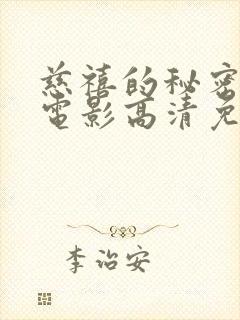 慈禧的秘密
電影高清免
李治安